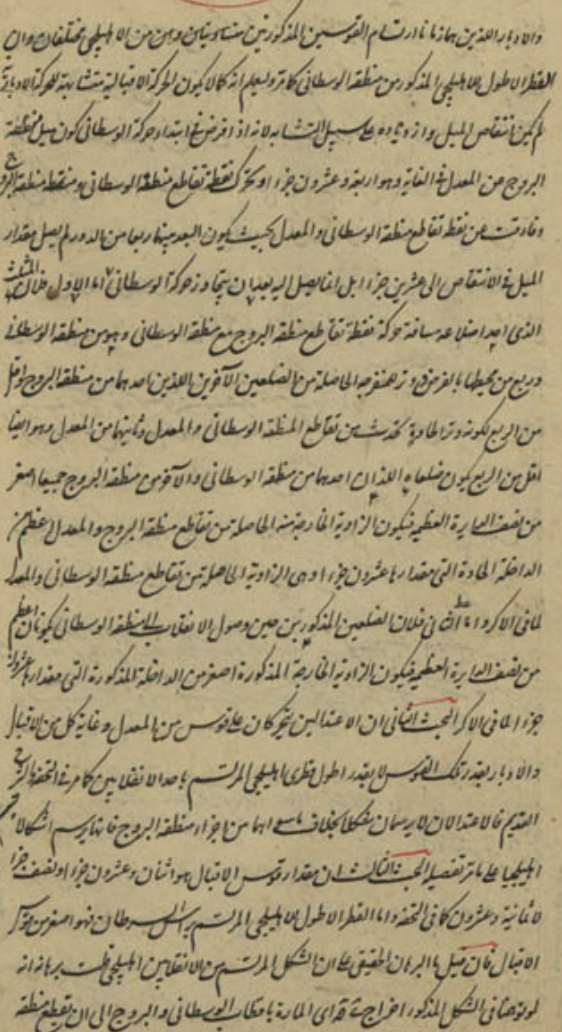 والادبار اللذين هما زمانا ارتسام القوسين المذكورتين متساويتان وهن من الاهليلجي مختلفان وان
القطر الاطول للاهليلجي المذكور من منطقة الوسطاني كما مر وليعلم انه كما لا يكون الحركة الاقبالية متشابهة للحركة الادبارية
لم يكن انتقاص الميل وازدياده على سبيل التشابه لانه اذا فرض في ابتداء حركة الوسطاني كون ميل منطقة
البروج عن المعدل في الغاية وهو اربعة وعشرون جزءا وتحرك نقطة تقاطع منطقة الوسطاني ومنطقة البروج
وفارقت عن نقطة تقاطع منطقة الوسطاني والمعدل بحيث يكون البعد بينهما ربعا من الدور لم يصل مقدار
الميل في الانتقاص الى عشرين جزءا بل انما يصل اليه بعد ان يتجاوز حركة الوسطاني اما الاول فلان المثلث
الذي احد اضلاعه مسافة حركة نقطة تقاطع منطقة البروج مع منطقة الوسطاني وهو من منطقة الوسطاني
وربع من محيطها بالفرض وتر للمنفرجة الحاصلة من الضلعين الآخرين اللذين احدهما من منطقة البروج اقل
من الربع لكونه وتر الحادة تحدث من تقاطع المنطقة الوسطاني والمعدل وثانيهما من المعدل وهو ايضا
اقل من الربع يكون ضلعاه اللذان احدهما من منطقة الوسطاني والآخر من منطقة البروج جميعا اصغر
من نصف الدايرة العظيمة فيكون الزاوية الخارجة منه الحاصلة من تقاطع منطقة البروج والمعدل اعظم من
الداخلة الحادة التي مقدارها عشرون جزءا وهي الزاوية الحاصلة من تقاطع منطقة الوسطاني والمعدل
لما في الاكر واما الثاني فلان الضلعين المذكورين حين وصول الانقلاب الى منطقة الوسطاني يكونان اعظم
من نصف الدايرة العظيمة فيكون الزاوية الخارجة المذكورة اصغر من الداخلة المذكورة التي مقدارها عشرون
جزءا لما في الاكر البحث الثاني ان الاعتدالين يتحركان على قوس من المعدل وغاية كل من الاقبال
والادبار بقدر تلك القوس لا بقدر اطول قطري اهليلجي المرتسم باحد الانقلابين كما مر في التحفة
القديم فالاعتدالان لا يرسمان شكلا بخلاف ما سواهما من اجزاء منطقة البروج فانها يرسم اشكالا
اهليلجيا على ما مر تفصيله البحث الثالث ان مقدار قوس الاقبال هو اثنان وعشرون جزءا ونصف جزء
لا ثمانية وعشرون كما في التحفة واما القطر الاطول للاهليلجي المرتسم براس السرطان فهو اصغر من قوس
الاقبال فان قيل ما البرهان الحقيقي على ان الشكل المرتسم من الانقلابين اهليلجي قلت برهانه انه
لو توهمنا في الشكل المذكور اخراج قوي المارة باقطاب الوسطاني والبروج الى ان يقطع منطقة